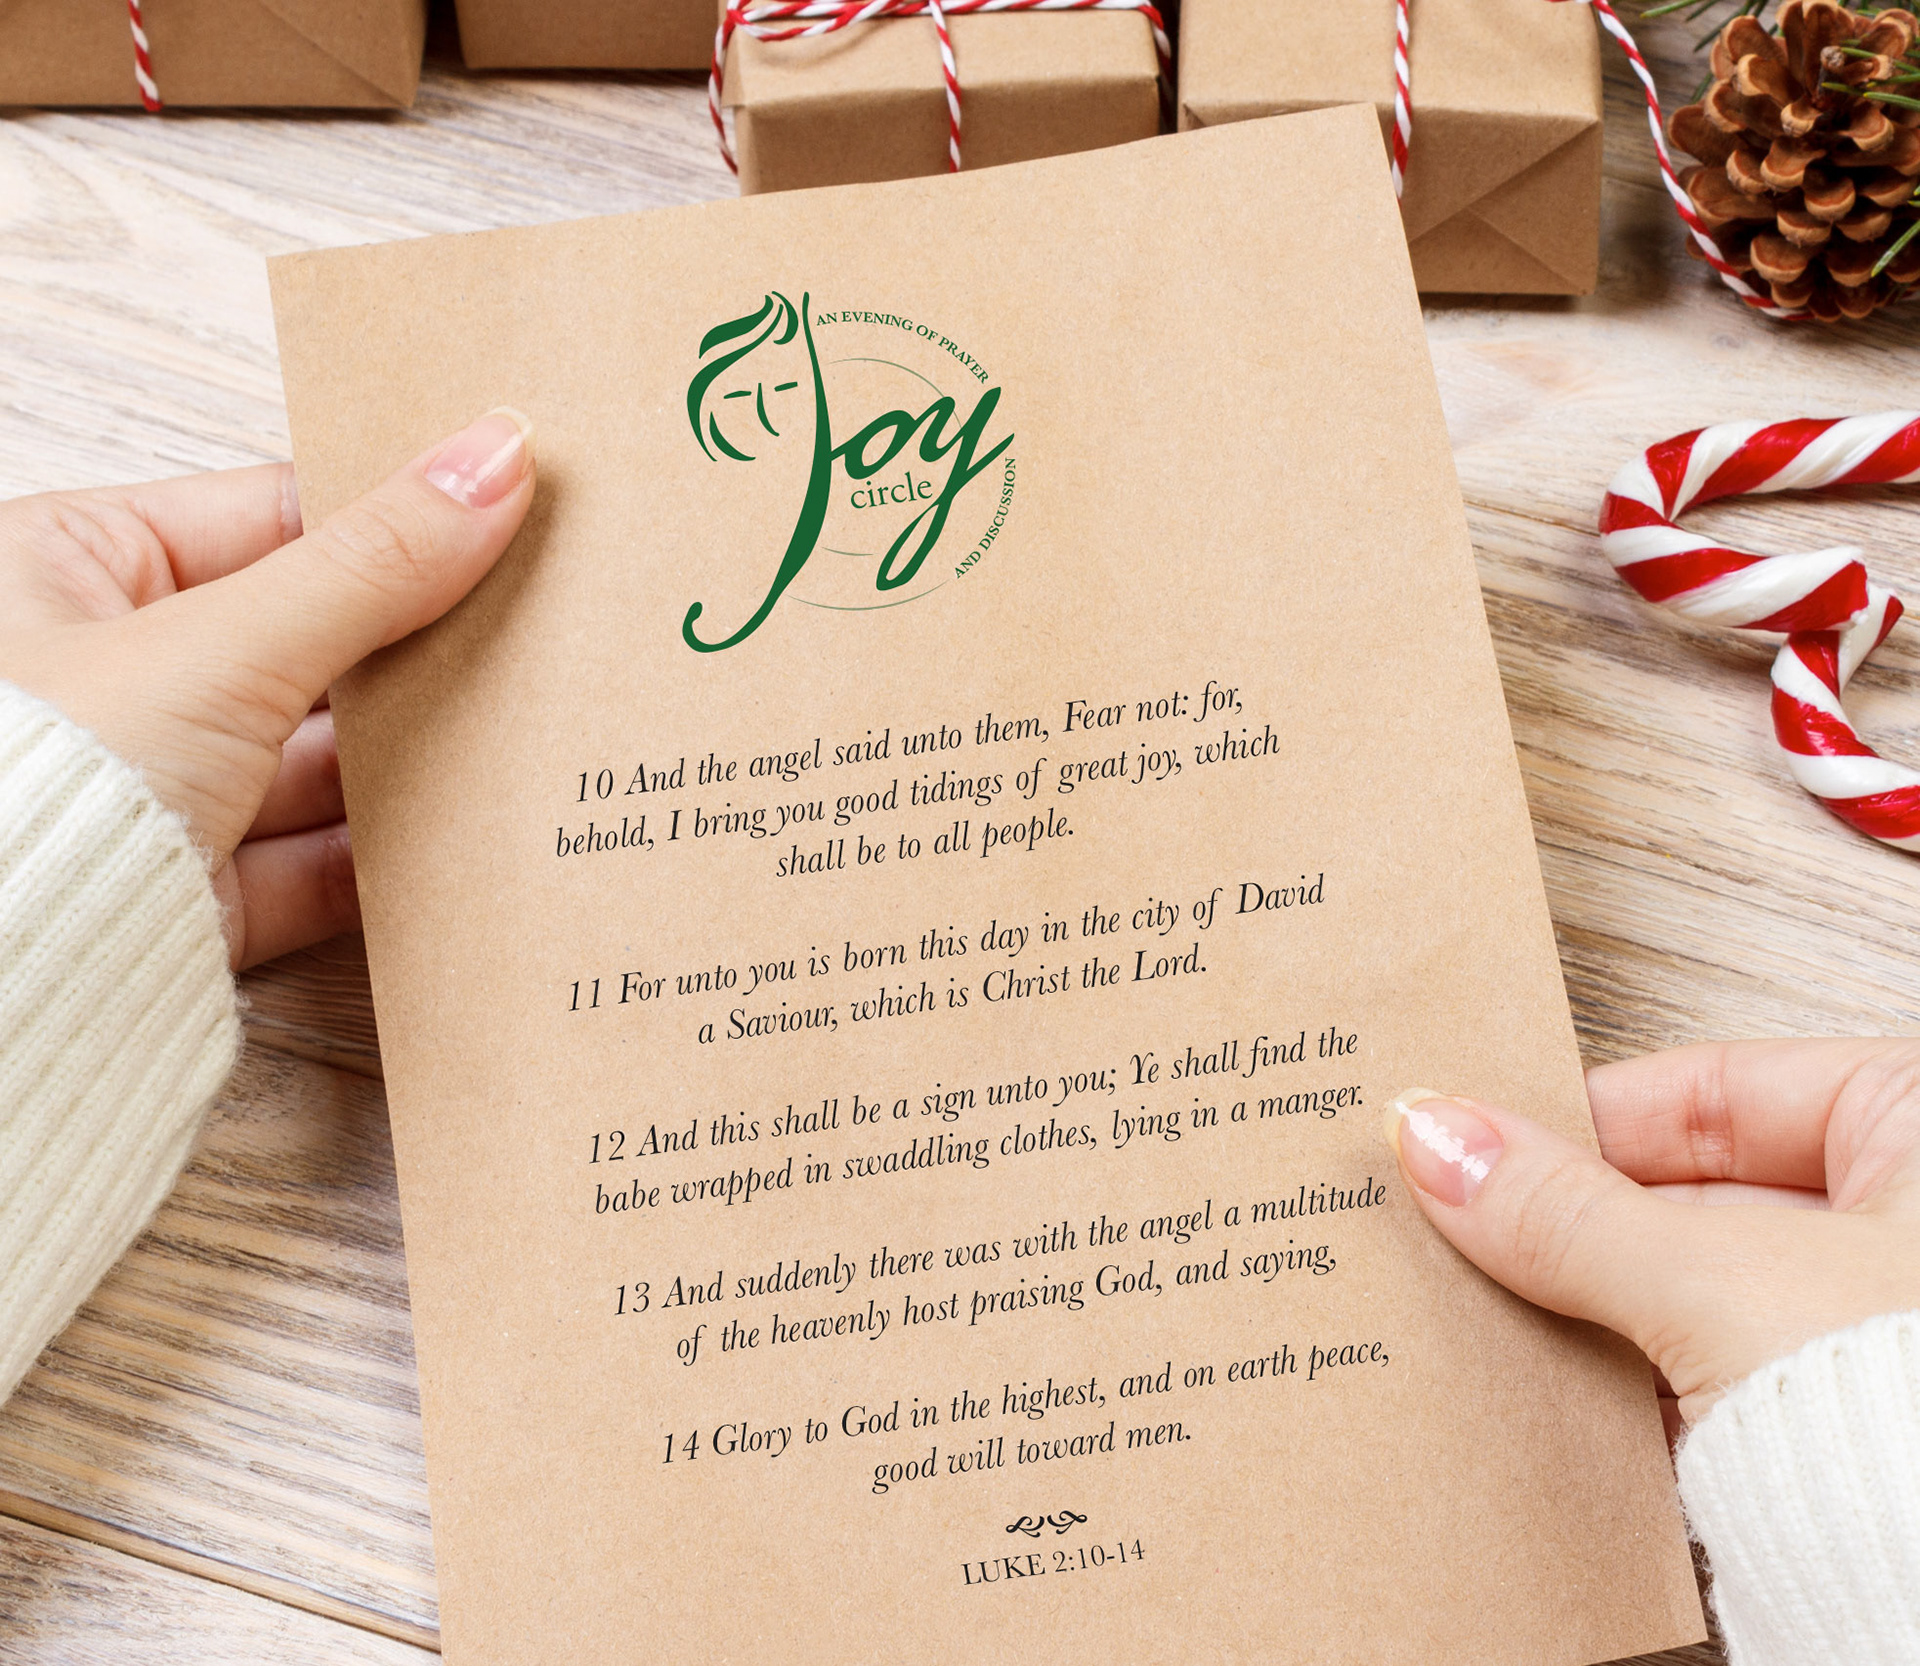 AN EVENING OF PRAYER
Joy
circle
AND DISCUSSION
10 And the angel said unto them, Fear not: for,
behold, I bring you good tidings of great joy, which
shall be to all people.
11 For unto you is born this day in the city of David
a Saviour, which is Christ the Lord.
12 And this shall be a sign unto you; Ye shall find the
babe wrapped in swaddling clothes, lying in a manger.
13 And suddenly there was with the angel a multitude
of the heavenly host praising God, and saying,
14 Glory to God in the highest, and on earth peace,
good will toward men.
LUKE 2:10-14